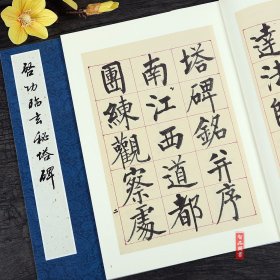 啓功临玄秘塔碑
達法師
塔碑銘并序
南江西道都
團練觀察處
二